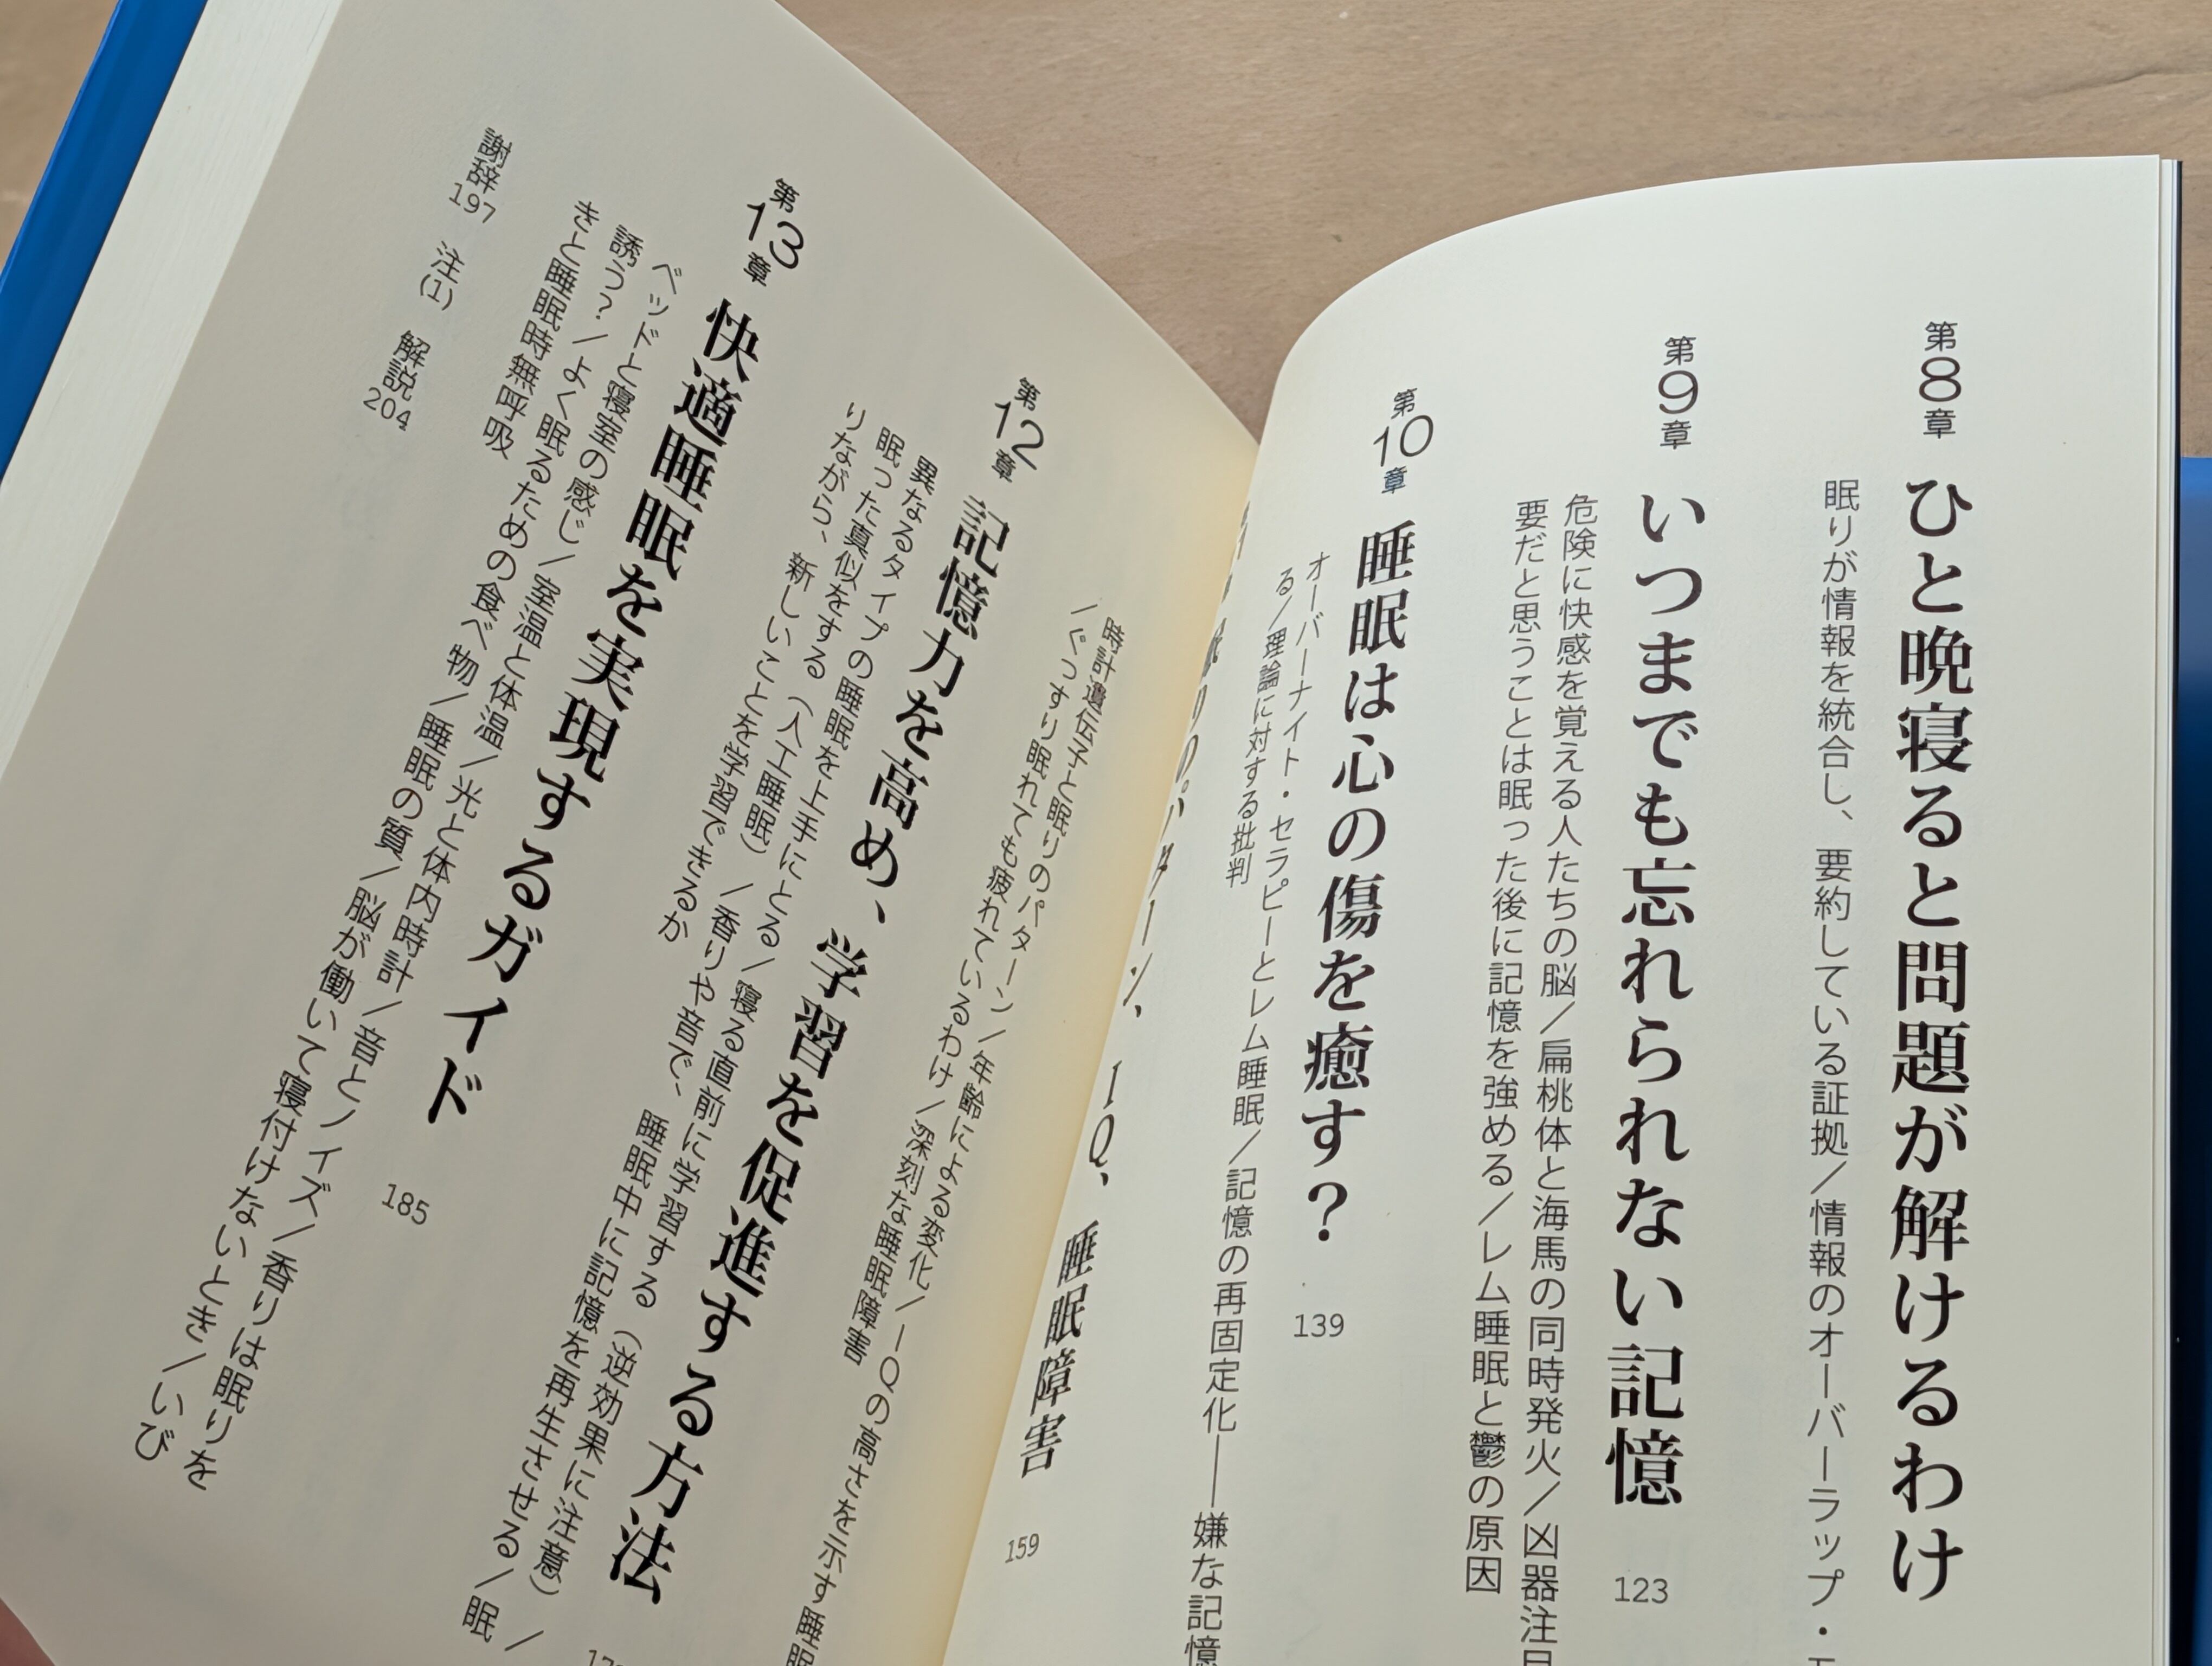 第8章 ひと晩寝ると問題が解けるわけ
眠りが情報を統合し、要約している証拠/情報のオーバーラップ・
第9章 いつまでも忘れられない記憶 123
危険に快感を覚える人たちの脳/扁桃体と海馬の同時発火/凶器注目
要だと思うことは眠った後に記憶を強める/レム睡眠と鬱の原因
第10章 睡眠は心の傷を癒す? 139
オーバーナイト・セラピーとレム睡眠/記憶の再固定化――嫌な記憶
る/理論に対する批判
眠りのパターン、IQ、睡眠障害 159
時計遺伝子と眠りのパターン/年齢による変化/IQの高さを示す睡眠
/ぐっすり眠れても疲れているわけ/深刻な睡眠障害
第12章 記憶力を高め、学習を促進する方法
異なるタイプの睡眠を上手にとる/寝る直前に学習する(逆効果に注意)/
眠った真似をする(人工睡眠)/香りや音で、睡眠中に記憶を再生させる/眠
りながら、新しいことを学習できるか
第13章 快適睡眠を実現するガイド 185
ベッドと寝室の感じ/室温と体温/光と体内時計/音とノイズ/香りは眠りを
誘う?/よく眠るための食べ物/睡眠の質/脳が働いて寝付けないとき/いび
きと睡眠時無呼吸
謝辞 197 注(1) 解説 204